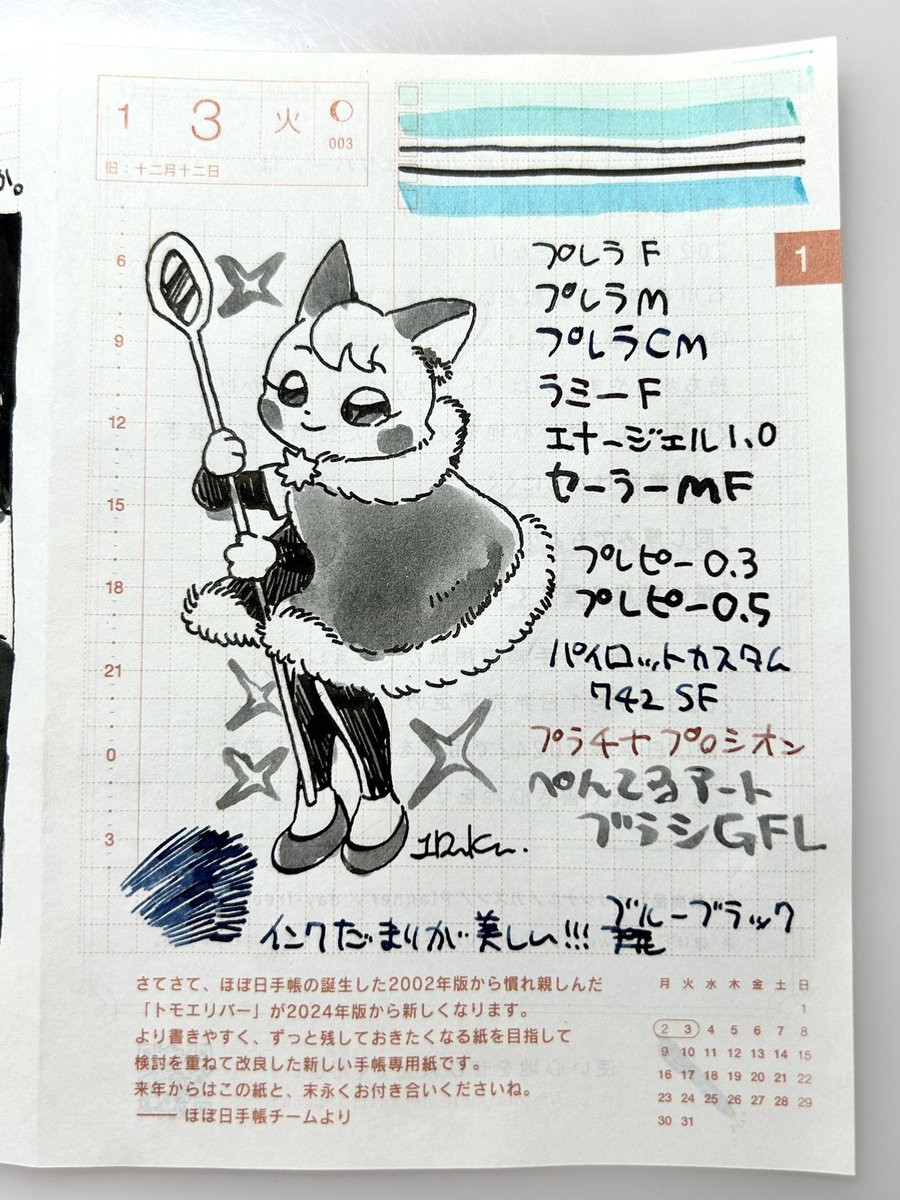 か。
1 3 火
003
旧：十二月十二日
1
プレラ F
プレラ M
プレラ CM
ラミー F
エナージェル 1.0
セーラー MF
プレピー 0.3
プレピー 0.5
パイロットカスタム
742 SF
プラチナ プロシオン
ぺんてるアート
ブラシ GFL
6
9
12
15
18
21
0
3
インクだまりが美しい!!! ブルーブラック
さてさて、ほぼ日手帳の誕生した2002年版から慣れ親しんだ
「トモエリバー」が2024年版から新しくなります。
より書きやすく、ずっと残しておきたくなる紙を目指して
検討を重ねて改良した新しい手帳専用紙です。
来年からはこの紙と、末永くお付き合いくださいね。
—— ほぼ日手帳チームより
月 火 水 木 金 土 日
1
2 3 4 5 6 7 8
9 10 11 12 13 14 15
16 17 18 19 20 21 22
23 24 25 26 27 28 29
30 31